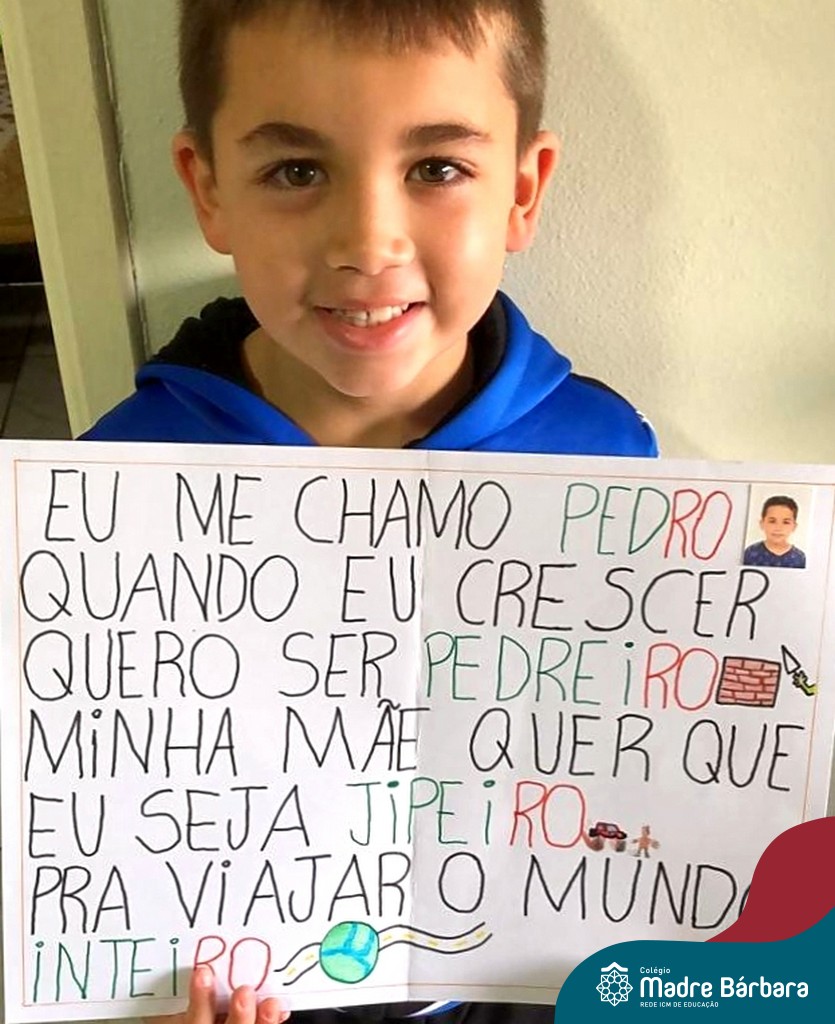 EU ME CHAMO PEDRO
QUANDO EU CRESCER
QUERO SER PEDREiRO
MiNHA MÃE QUER QUE
EU SEJA JiPEiRO
PRA ViAJAR O MUNDO
iNTEiRO
Colégio
Madre Bárbara
REDE ICM DE EDUCAÇÃO